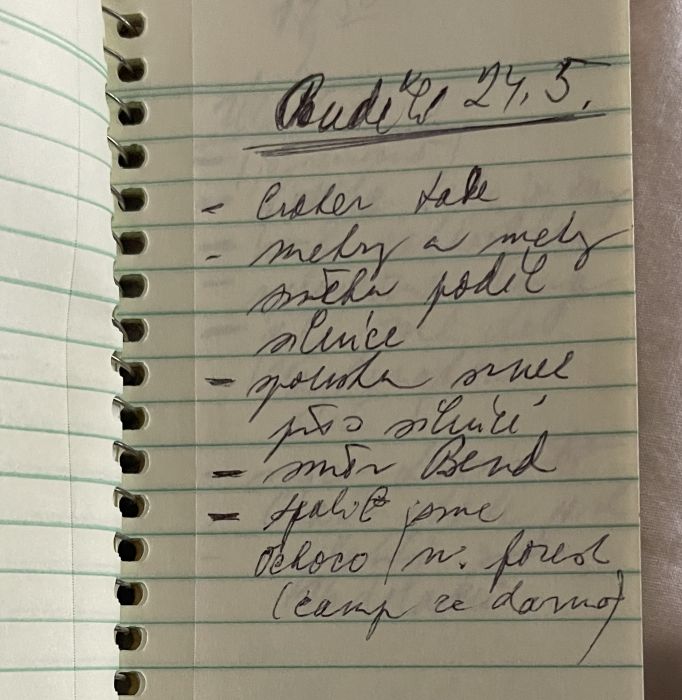 24.5.
- Crater Lake
- metry a metry
sněhu podél
silnice
- spousta srnek
přes silnici
- směr Bend
- spali jsme
Ochoco n. forest
(camp za darmo)